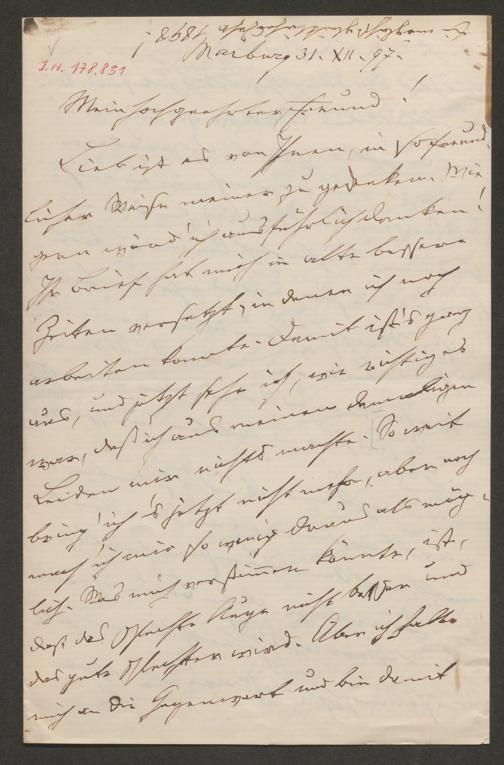 J.N. 178.831
Marburg 31. XII. 97.
Mein hochgeehrter Freund!
Lieb ist es von Ihnen, in so freund-
licher Weise meiner zu gedenken. Wie
gern würd' ich ausführlich danken!
Ihr Brief hat mich in alte bessere
Zeiten versetzt, in denen ich noch
arbeiten konnte. Damit ist's ganz
aus, und jetzt sehe ich, wie richtig es
war, daß ich aus meinen damaligen
Leiden mir nichts machte. So weit
bring' ich's jetzt nicht mehr, aber noch
mach' ich mir so wenig daraus als mög-
lich. Was mich verstimmen könnte, ist,
daß das schlechte Auge nicht besser und
das gute schlechter wird. Aber ich halte
mich an die Gegenwart und bin damit